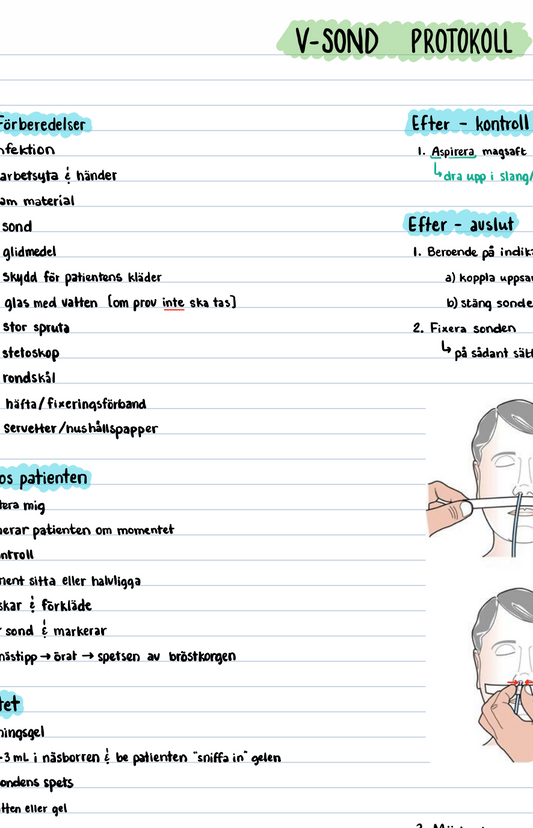 V-SOND PROTOKOLL
Förberedelser
nfektion
arbetsyta & händer
am material
sond
glidmedel
skydd för patientens kläder
glas med vatten [om prov inte ska tas]
stor spruta
stetoskop
rondskål
häfta/fixeringsförband
servetter/hushållspapper
os patienten
tera mig
merar patienten om momentet
ntroll
ment sitta eller halvligga
skar & förkläde
r sond & markerar
nästipp → örat → spetsen av bröstkorgen
tet
ningsgel
-3 mL i näsborren & be patienten "sniffa in" gelen
ondens spets
tten eller gel
Efter - kontroll
1. Aspirera magsaft
↳ dra upp i slang/
Efter - avslut
1. Beroende på indik
a) koppla uppsa
b) stäng sonde
2. Fixera sonden
↳ på sådant sätt